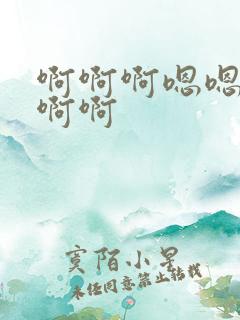 啊啊啊嗯嗯
啊啊
寞陌小呈
未经同意禁止转载